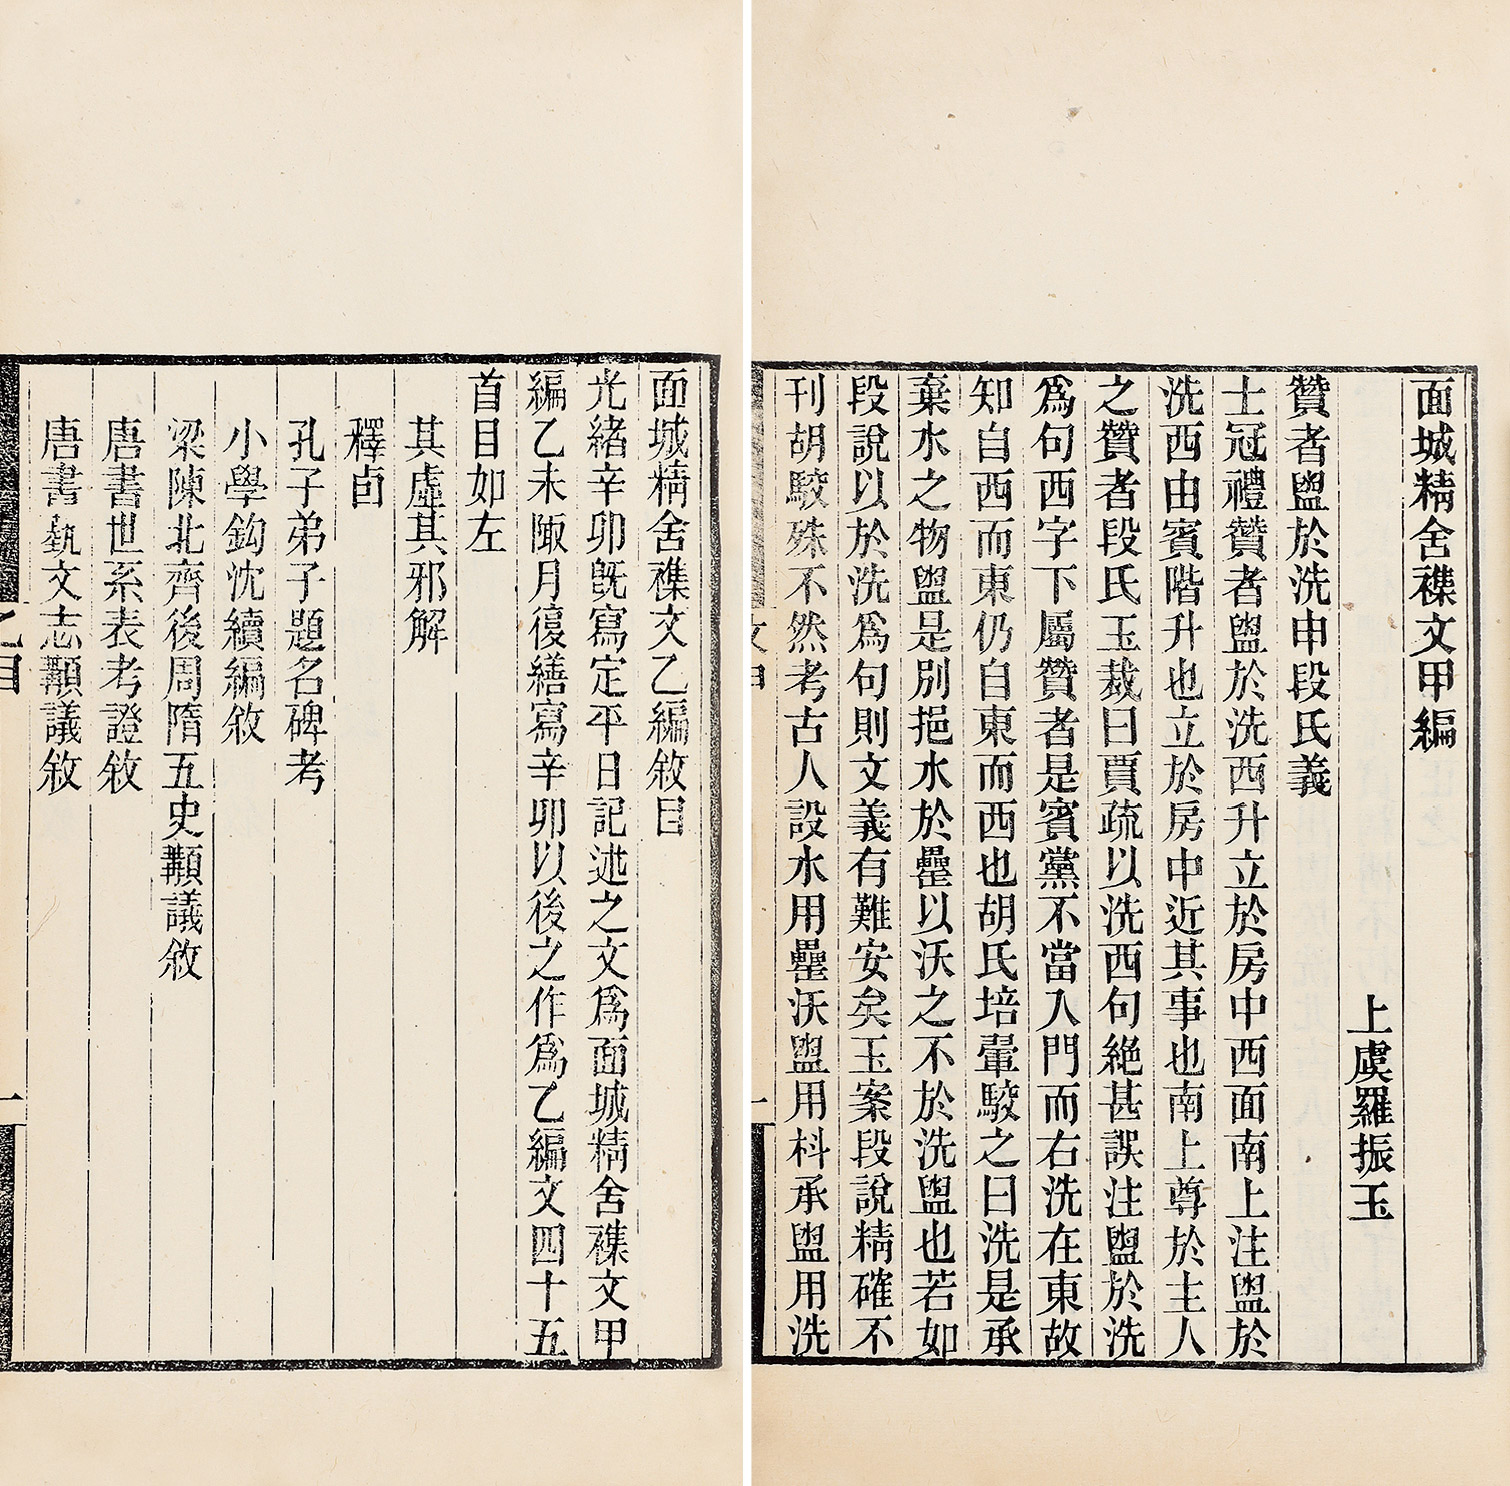 面城精舍襍文甲編
上虞羅振玉
贊者盥於洗申段氏義
士冠禮贊者盥於洗西升立於房中西面南上注盥於
洗西由賓階升也立於房中近其事也南上尊於主人
之贊者段氏玉裁曰賈疏以洗西句絶甚誤注盥於洗
爲句西字下屬贊者是賓黨不當入門而右洗在東故
知自西而東仍自東而西也胡氏培翬駮之曰洗是承
棄水之物盥是別挹水於罍以沃之不於洗盥也若如
段說以於洗爲句則文義有難安矣玉案段說精確不
刊胡駮殊不然考古人設水用罍沃盥用枓承盥用洗
文甲
一
面城精舍襍文乙編敘目
光緒辛卯旣寫定平日記述之文爲面城精舍襍文甲
編乙未陬月復繕寫辛卯以後之作爲乙編文四十五
首目如左
其虛其邪解
釋卣
孔子弟子題名碑考
小學鈎沈續編敘
梁陳北齊後周隋五史斠議敘
唐書世系表考證敘
唐書藝文志斠議敘
乙目
一